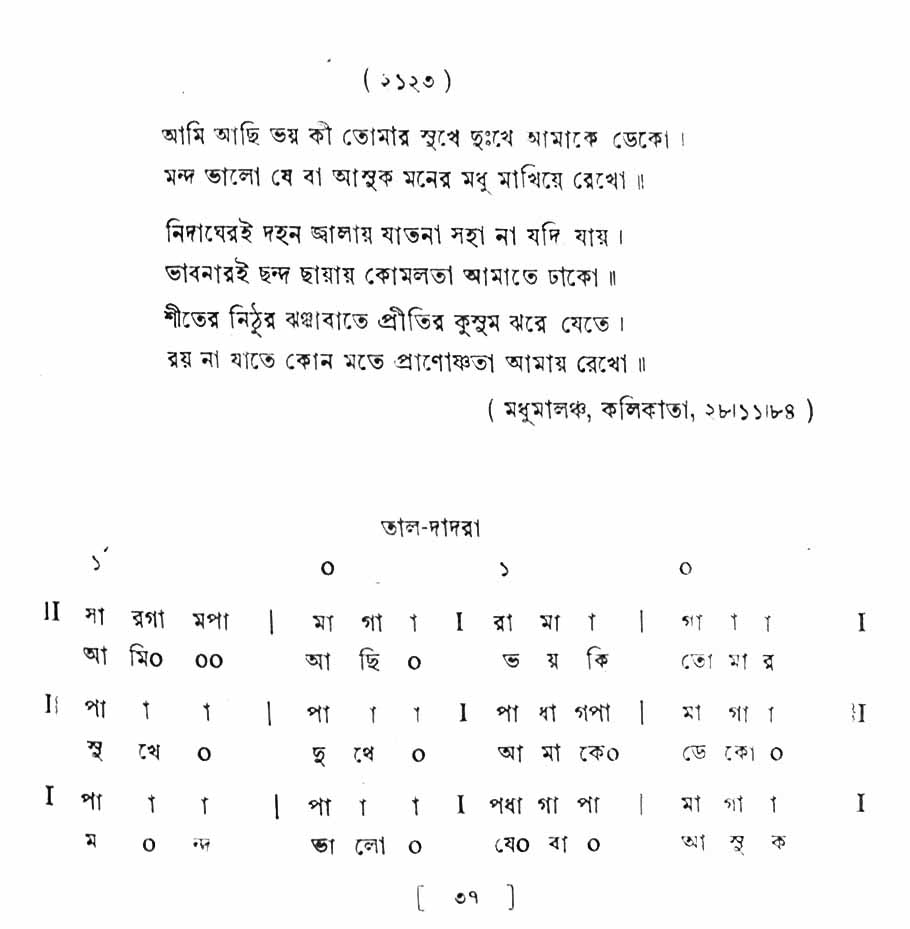 ( ২১২৩ )
আমি আছি ভয় কী তোমার সুখে দুঃখে আমাকে ডেকো ।
মন্দ ভালো যে বা আসুক মনের মধু মাখিয়ে রেখো ॥
নিদাঘেরই দহন জ্বালায় যাতনা সহা না যদি যায় ।
ভাবনারই ছন্দ ছায়ায় কোমলতা আমাতে ঢাকো ॥
শীতের নিঠুর ঝঞ্ঝাবাতে প্রীতির কুসুম ঝরে যেতে ।
রয় না যাতে কোন মতে প্রাণোষ্ণতা আমায় রেখো ॥
( মধুমালঞ্চ, কলিকাতা, ২৮।১১।৮৪ )
তাল-দাদরা
১´ ০ ১ ০
II সা রগা মপা | মা গা া I রা মা া | গা া া I
আ মি০ ০০ আ ছি ০ ভ য় কি তো মা র
I{ পা া া | পা া া I পা ধা গপা | মা গা া }I
সু খে ০ দু খে ০ আ মা কে০ ডে কো ০
I পা া া | পা া া I পধা গা পা | মা গা া I
ম ০ ন্দ ভা লো ০ যে০ বা ০ আ সু ক
[ ৩৭ ]